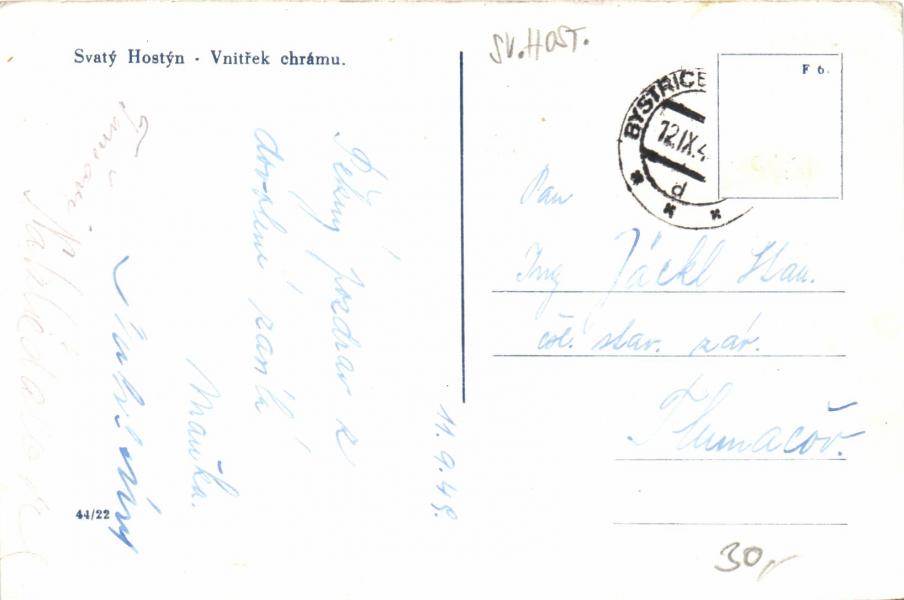 Svatý Hostýn - Vnitřek chrámu.
SV. HOST.
F 6.
BYSTŘICE
12.IX.4
d
Pan
Ing Jäckl Stan.
čsl. stav. záv.
Tlumačov.
30,-
Pěkný pozdrav z
dovolené zasílá
Mařka.
11. 9. 48.
44/22